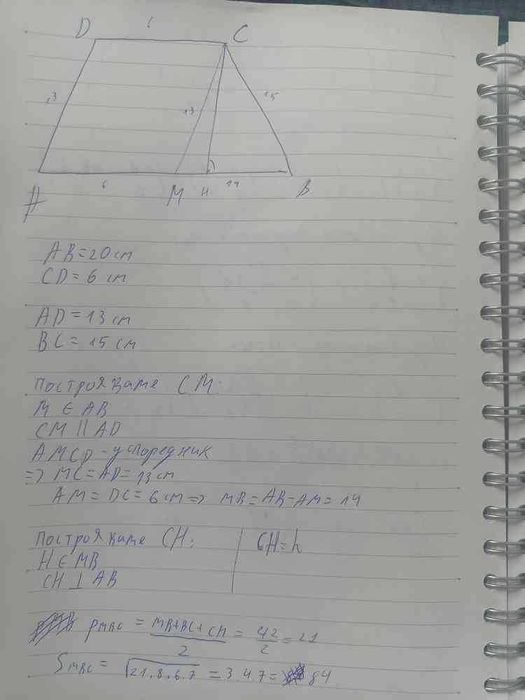 D 6 C
13 13 15
6 14
A M H B
AB=20 см
CD=6 см
AD=13 см
BC=15 см
построяваме CM:
M ∈ AB
CM || AD
AMCD - успоредник
=> MC=AD=13 см
AM=DC=6 см => MB=AB-AM=14
построяваме CH: | CH=h
H ∈ MB
CH ⊥ AB
PMBC = MB+BC+CM / 2 = 42 / 2 = 21
SMBC = √21.8.6.7 = 3 4.7 = 84